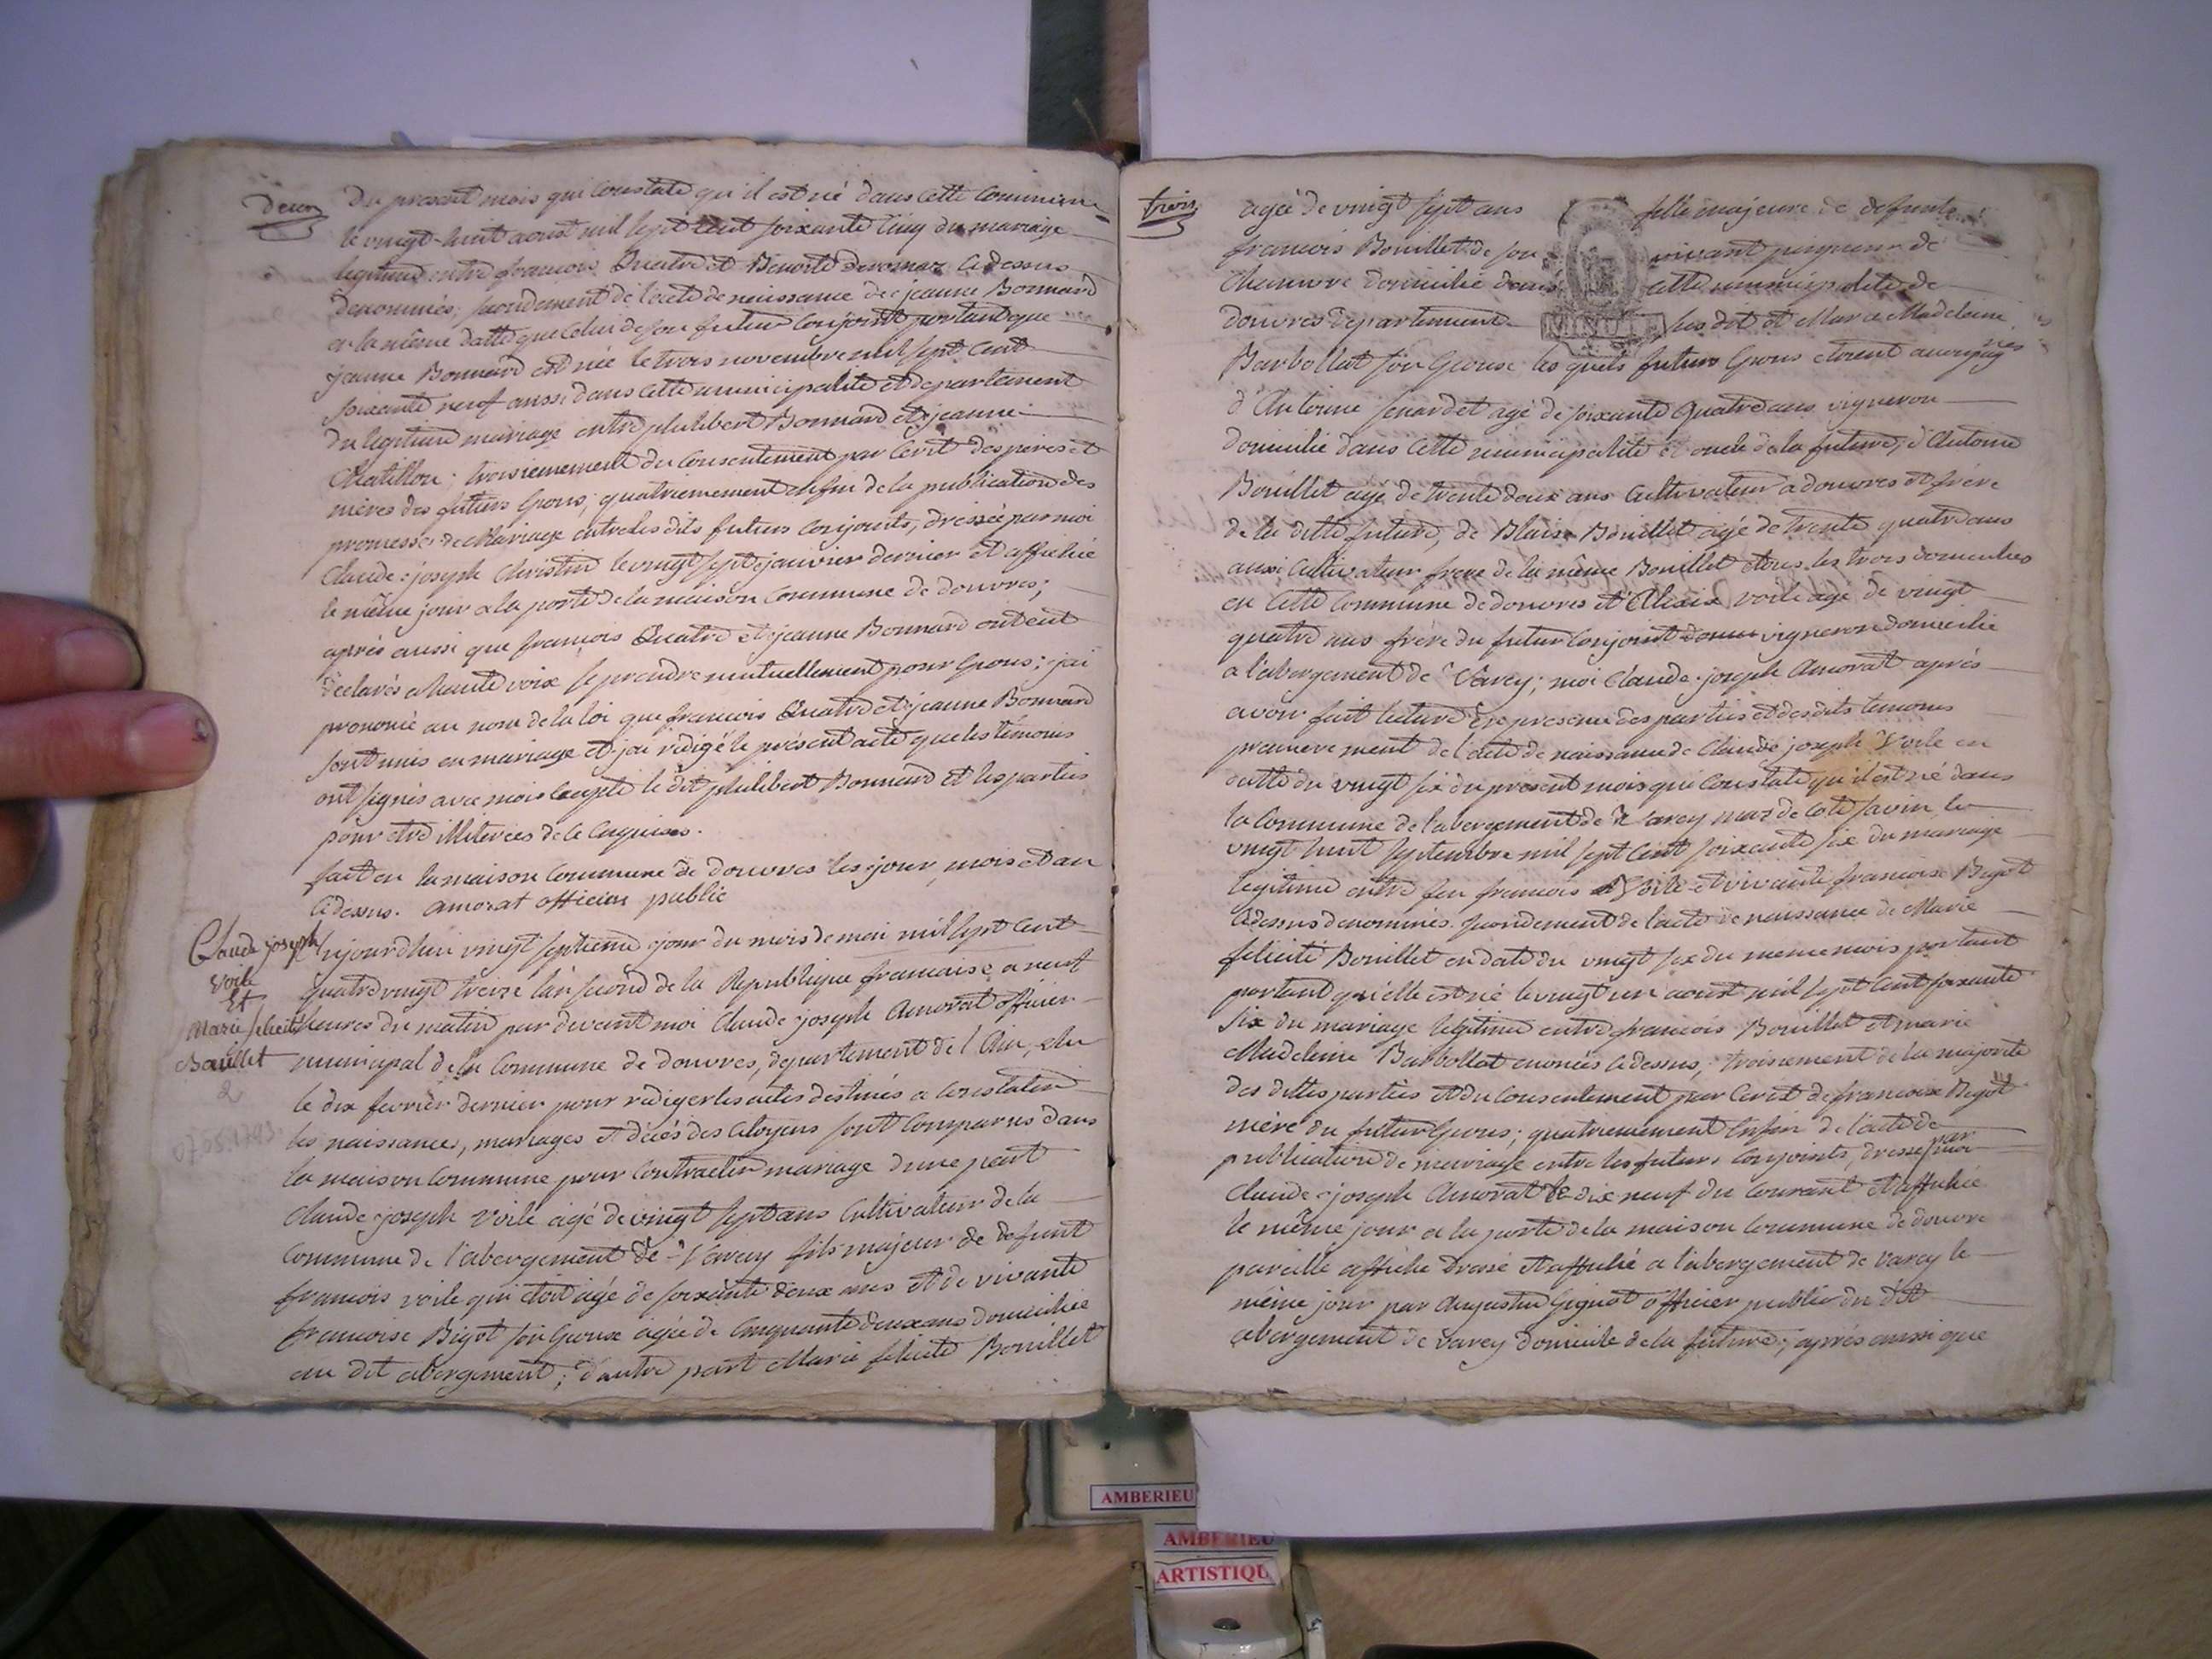 deux
du present mois qui Constate qu'il est né dans cette Commune
le vingt-huit aoust mil sept cent soixante Cinq du mariage
legitime entre francois Quatre et Benoite Cidessus
denommés; secondement de l'acte de naissance de jeanne Bonnard
en la même datte que celui de son futur Conjoint portant que
jeanne Bonnard est née le trois novembre mil sept cent
soixante neuf aussi dans cette municipalité et departement
du legitime mariage entre philibert Bonnard et jeanne
Chatillon; troisiemement du Consentement par Ecrit des peres et
mères des futurs Epous; quatriemement enfin de la publication des
promesses de Mariage entre les dits futurs Conjoints, dressée par moi
Claude-joseph Christin le vingt sept janvier dernier et affichée
le même jour a la porte de la maison Commune de douvres;
après aussi que francois Quatre et jeanne Bonnard ont eut
declarés a haute voix se prendre mutuellement pour Epous; j'ai
prononcé au nom de la loi que francois Quatre et jeanne Bonnard
sont unis en mariage et j'ai rédigé le présent acte que les témoins
ont signés avec moi Excepté le dit philibert Bonnard et les parties
pour etre illiterées de ce Enquises.
fait en la maison Commune de douvres les jour, mois et an
Cidessus. amorat officier public
Claude joseph
Voile
Et
Marie felicité
Bouillet
2
07.05.1793
aujourdhui vingt septieme jour du mois de mai mil sept cent
quatre vingt treize l'an second de la Republique francaise a neuf
heures du matin par devant moi Claude joseph Amorat officier
municipal de la Commune de douvres, departement de l'Ain, elu
le dix fevrier dernier pour rediger les actes destinés a Constater
les naissances, mariages et décés des Citoyens sont Comparus dans
la maison Commune pour Contracter mariage d'une part
Claude-joseph Voile agé de vingt sept ans Cultivateur de la
Commune de l'abergement de Varey fils majeur de defunt
francois voile qui étoit agé de soixante deux ans et de vivante
francoise Bigot son Epouse agée de Cinquante deux ans domiciliée
au dit abergement; d'autre part Marie felicité Bouillet
trois
agée de vingt sept ans fille majeure de defunts
francois Bouillet de son vivant peigneur de
Chanvre domicilié dans cette municipalité de
douvres departement susdit et Marie Madeleine
MINUTE
Barbollat son Epouse les quels futurs Epous etoient accompagnés
d'Antoine senardet agé de soixante quatre ans vigneron
domicilié dans cette municipalité et oncle de la future; d'Antoine
Bouillet agé de trente deux ans Cultivateur a douvres et frère
de la ditte future, de Blaise Bouillet agé de trente quatre ans
aussi Cultivateur frere de la même Bouillet tous les trois domiciliés
en cette Commune de douvres et d'Alexis voile agé de vingt
quatre ans frère du futur Conjoint vigneron domicilié
a l'abergement de Varey; moi Claude-joseph Amorat après
avoir fait lecture En presence des parties et des dits temoins
premierement de l'acte de naissance de Claude joseph Voile en
datte du vingt six du present mois qui Constate qu'il est né dans
la Commune de l'abergement de Varey mas de Cote savin le
vingt huit septembre mil sept Cent soixante six du mariage
legitime entre feu francois Voile et vivante francoise Bigot
Cidessus denommés. secondement de l'acte de naissance de Marie
felicité Bouillet en date du vingt six du meme mois portant
portant qu'elle est née le vingt un aoust mil sept Cent soixante
six du mariage legitime entre francois Bouillet et marie
Madeleine Barbollat enoncés Cidessus; troisiement de la majorité
des dittes parties et du Consentement par Ecrit de francoise Bigot
mère du futur Epous; quatriemement Enfin de l'acte de
publication de mariage entre les futurs Conjoints, dressé par moi
Claude-joseph Amorat le dix neuf du Courant et affichée
le même jour a la porte de la maison Commune de douvre
pareille affiche dressé et affiché a l'abergement de Varey le
même jour par Augustin Gignot officier public du dit
abergement de varey domicile de la future; après aussi que
AMBERIEU
AMBERIEU
ARTISTIQU